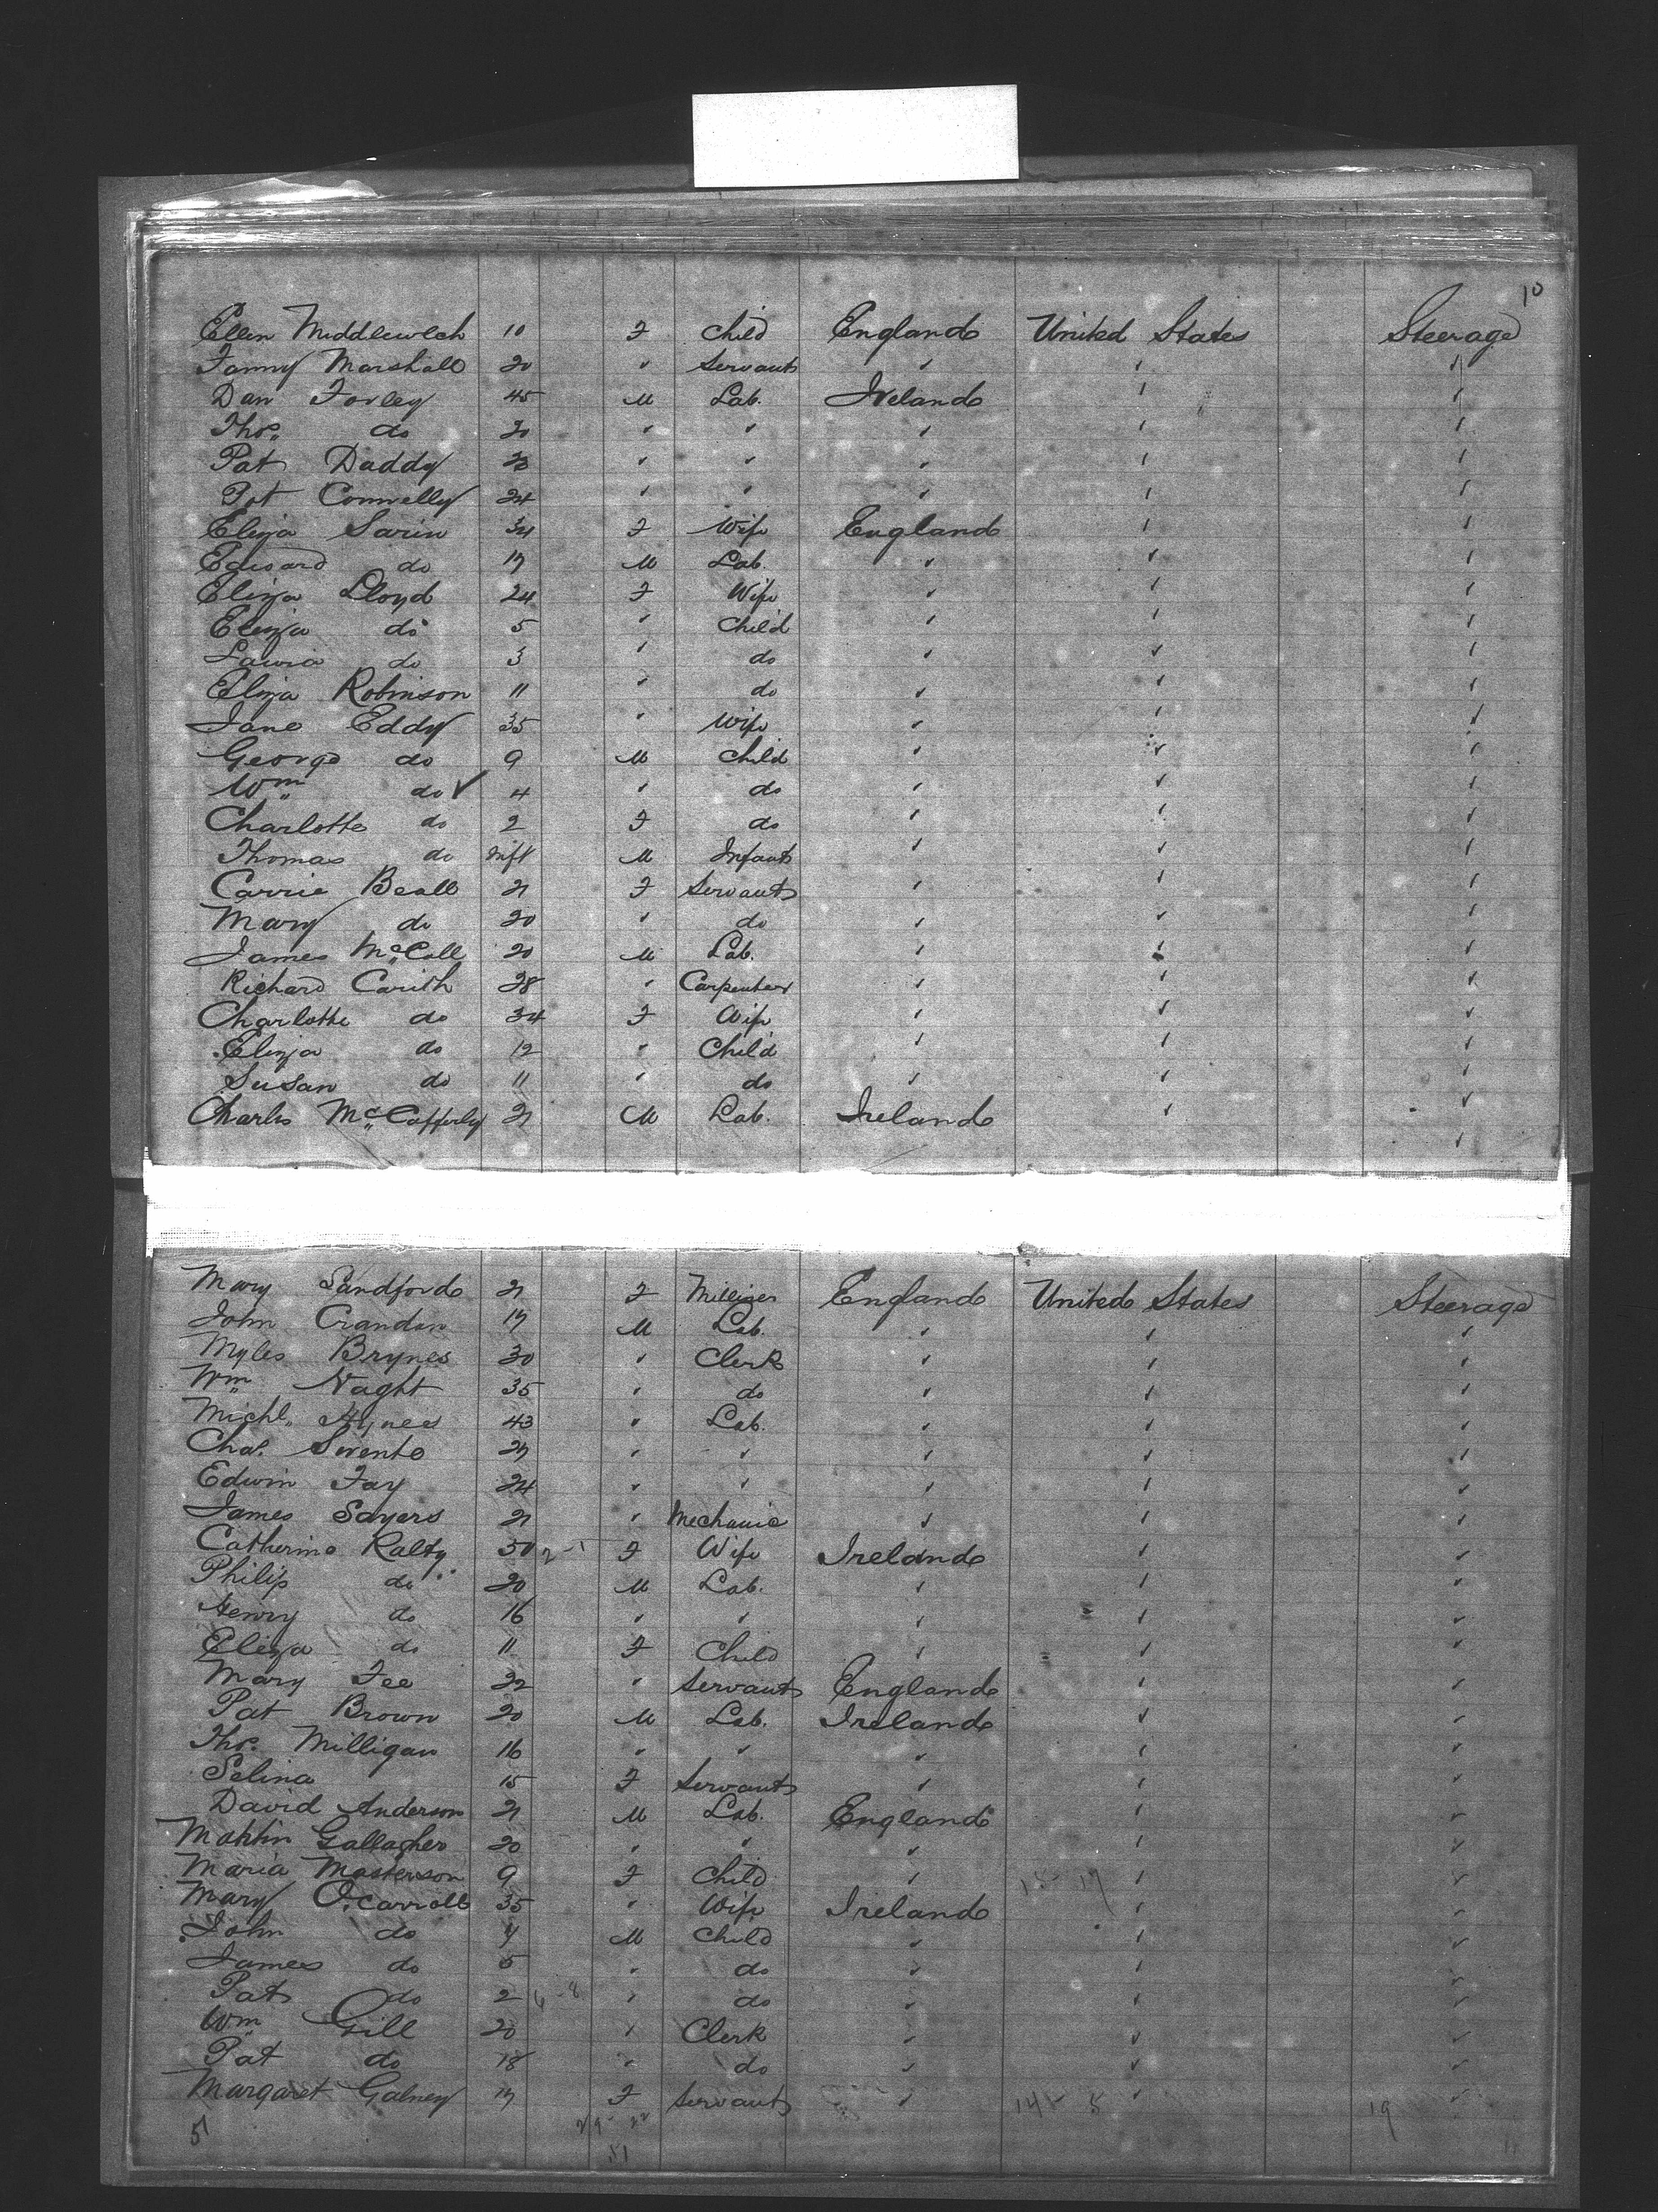 10
Ellen Middlewich 10 F Child England United States Steerage
Fanny Marshall 20 " Servant " " "
Dan Forley 45 M Lab. Ireland " "
Thos. do 20 " " " " "
Pat Daddy " " " " "
Pat Connelly 24 " " " " "
Eliza Sarin 34 F Wife England " "
Edward do 17 M Lab. " " "
Eliza Lloyd 24 F Wife " " "
Eliza do 5 " Child " " "
Laura do 3 " do " " "
Eliza Robinson 11 " do " " "
Jane Eddy 35 " Wife " " "
George do 9 M Child " " "
Wm do ✓ 4 " do " " "
Charlotte do 2 F do " " "
Thomas do Inft M Infant " " "
Carrie Beall 21 F Servant " " "
Mary do 20 " do " " "
James McCall 20 M Lab. " " "
Richard Carith 38 " Carpenter " " "
Charlotte do 34 F Wife " " "
Eliza do 12 " Child " " "
Susan do 11 " do " " "
Charles McCafferly 21 M Lab. Ireland " "
Mary Sandford 21 F Milliner England United States Steerage
John Crandon 17 M Lab. " " "
Myles Brynes 30 " Clerk " " "
Wm Naght 35 " do " " "
Michl. Hynes 43 " Lab. " " "
Chas. 27 " " " " "
Edwin Fay 24 " " " " "
James Sayers 21 " Mechanic " " "
Catherine Ralty 50 2-1 F Wife Ireland " "
Philip do 20 M Lab. " " "
Henry do 16 " " " " "
Eliza do 11 F Child " " "
Mary Fee 22 " Servant England " "
Pat Brown 20 M Lab. Ireland " "
Thos. Milligan 16 " " " " "
Selina 15 F Servant " " "
David Anderson 21 M Lab. England " "
Martin Gallagher 20 " " " " "
Maria Masterson 9 F Child " 15-17 " "
Mary O'Carroll 35 " Wife Ireland " "
John do 7 M Child " " "
James do 5 " do " " "
Pat do 2 6-8 " do " " "
Wm Gill 20 " Clerk " " "
Pat do 18 " do " " "
Margaret Galney 17 F Servant " " "
51 29-22 14-5 19
51